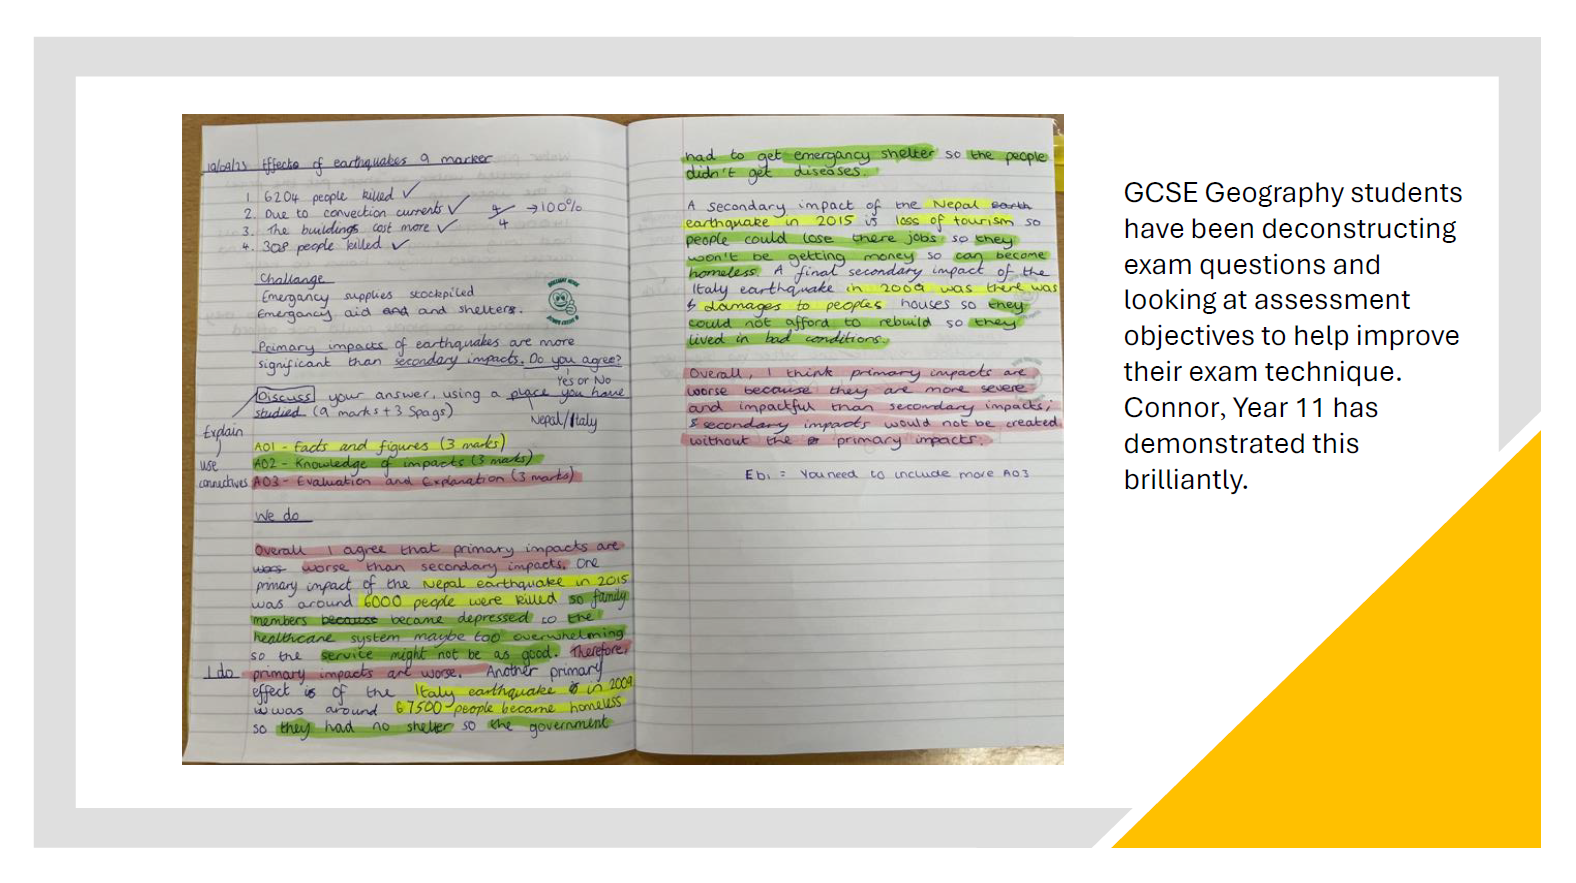 10/09/25 Effects of earthquakes 9 marker
1 6204 people killed ✓
2. Due to convection currents ✓
3. The buildings cost more ✓
4. 308 people killed ✓
4/4 → 100%
Challange
Emergancy supplies stockpiled
Emergancy aid and and shelters.
Primary impacts of earthquakes are more
significant than secondary impacts. Do you agree?
Yes or No
Discuss your answer, using a place you have
studied (9 marks + 3 Spags)
Nepal/Italy
Explain
use
connectives
A01 - Facts and figures (3 marks)
A02 - Knowledge of impacts (3 marks)
A03 - Evaluation and Explanation (3 marks)
We do
Overall I agree that primary impacts are
was worse than secondary impacts. One
primary impact of the Nepal earthquake in 2015
was around 6000 people were killed so family
members because became depressed so the
healthcare system maybe too overwhelming
so the service might not be as good. Therefore,
I do
primary impacts are worse. Another primary
effect is of the Italy earthquake in 2009
was around 67500 people became homeless
so they had no shelter so the government
had to get emergancy shelter so the people
didn't get diseases.
A secondary impact of the Nepal earth
earthquake in 2015 is loss of tourism so
people could lose there jobs so they
won't be getting money so can become
homeless. A final secondary impact of the
Italy earthquake in 2009 was there was
damages to peoples houses so they
could not afford to rebuild so they
lived in bad conditions.
Overall, I think primary impacts are
worse because they are more severe
and impactful than secondary impacts,
secondary impacts would not be created
without the primary impacts.
Ebi = You need to include more A03
GCSE Geography students
have been deconstructing
exam questions and
looking at assessment
objectives to help improve
their exam technique.
Connor, Year 11 has
demonstrated this
brilliantly.